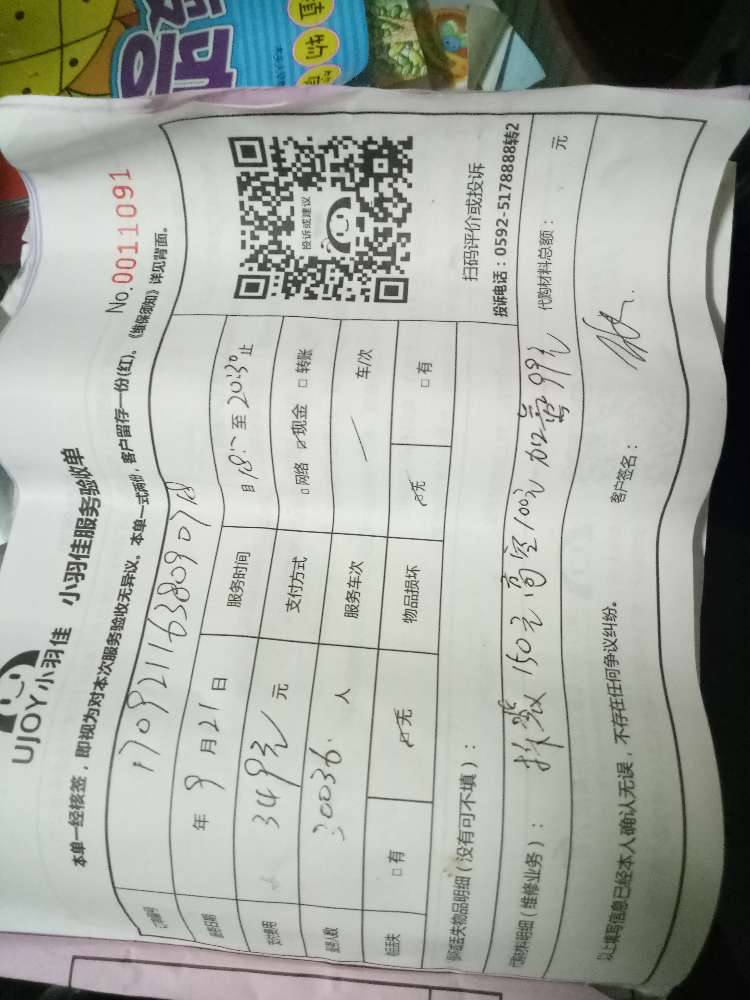 UJOY小羽佳 小羽佳服务验收单
No.0011091
本单一经核签，即视为对本次服务验收无异议。本单一式两份，客户留存一份(红)。《维保须知》详见背面。
订单编号 170921163809078
服务日期 年 9 月 21 日 服务时间 自 18: 至 20:30 止
支付费用 349元 元 支付方式 □网络 ☑现金 □转账
服务人数 30036. 人 服务车次 / 车/次
物品丢失 □有 ☑无 物品损坏 ☑无 □有
投诉或建议
扫码评价或投诉
投诉电话：0592-5178888转2
损坏或丢失物品明细（没有可不填）：
代购材料明细（维修业务）： 拆装150元 高空100元 加雪99元 代购材料总额： 元
以上填写信息已经本人确认无误，不存在任何争议纠纷。 客户签名：
植物